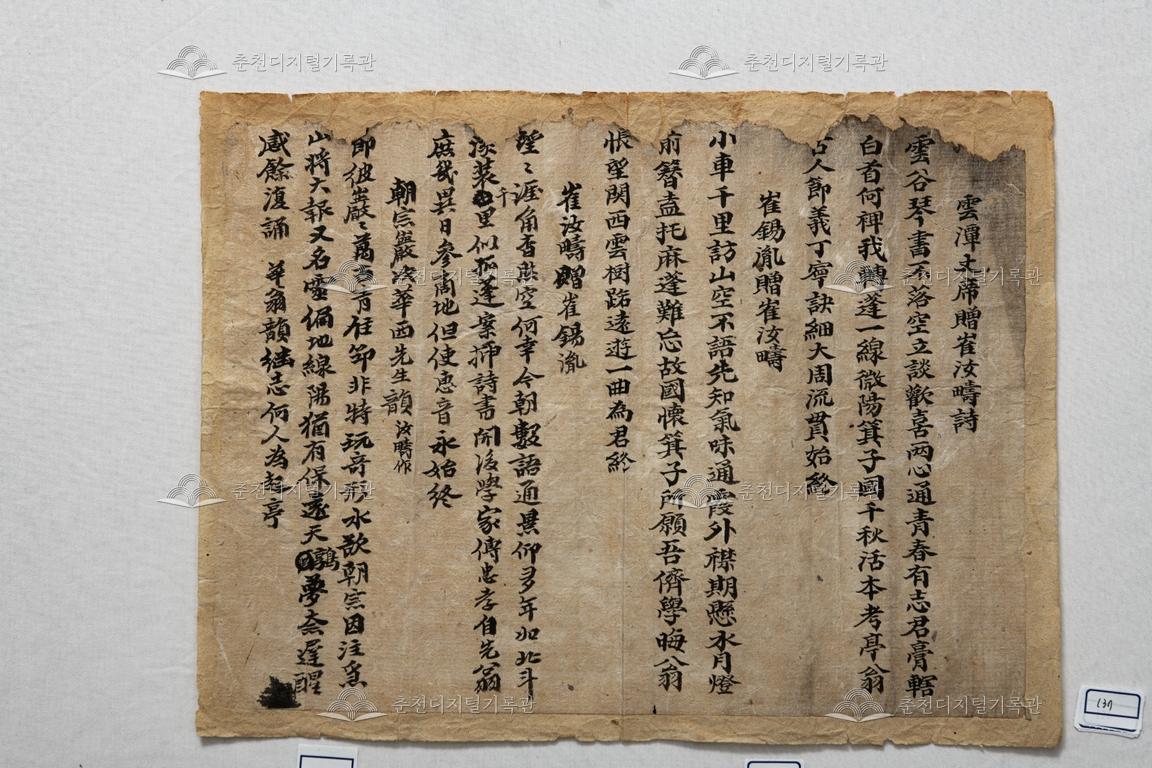 雲潭丈席贈崔汝疇詩
雲谷琴書不落空立談歡喜两心通青春有志君膏轄
白首何裨我轉蓬一線微陽箕子國千秋活本考亭翁
古人節義丁寧訣細大周流貫始終
崔錫胤贈崔汝疇
小車千里訪山空不語先知氣味通霞外襟期懸水月燈
前簪盍托麻蓬難忘故國懷箕子所願吾儕學晦翁
悵望関西雲樹路遠遊一曲為君終
崔汝疇贈崔錫胤
望〻涯角杳茫空何幸今朝數語通景仰多年如北斗
涿装千里似孤蓬案擲詩書開後學家傳忠孝自先翁
庶幾異日參商地但使惠音永始終
朝宗巖次華西先生韻 汝疇作
即彼巖〻萬古青柱笻非特玩奇形水欲朝宗因注
山將大報又名靈偏地線陽猶有保遼天鶴夢奈遲醒
感餘復誦 華翁韻継志何人為起亭
춘천디지털기록관
춘천디지털기록관
춘천디지털기록관
춘천디지털기록관
춘천디지털기록관
춘천디지털기록관
춘천디지털기록관
춘천디지털기록관
춘천디지털기록관
137